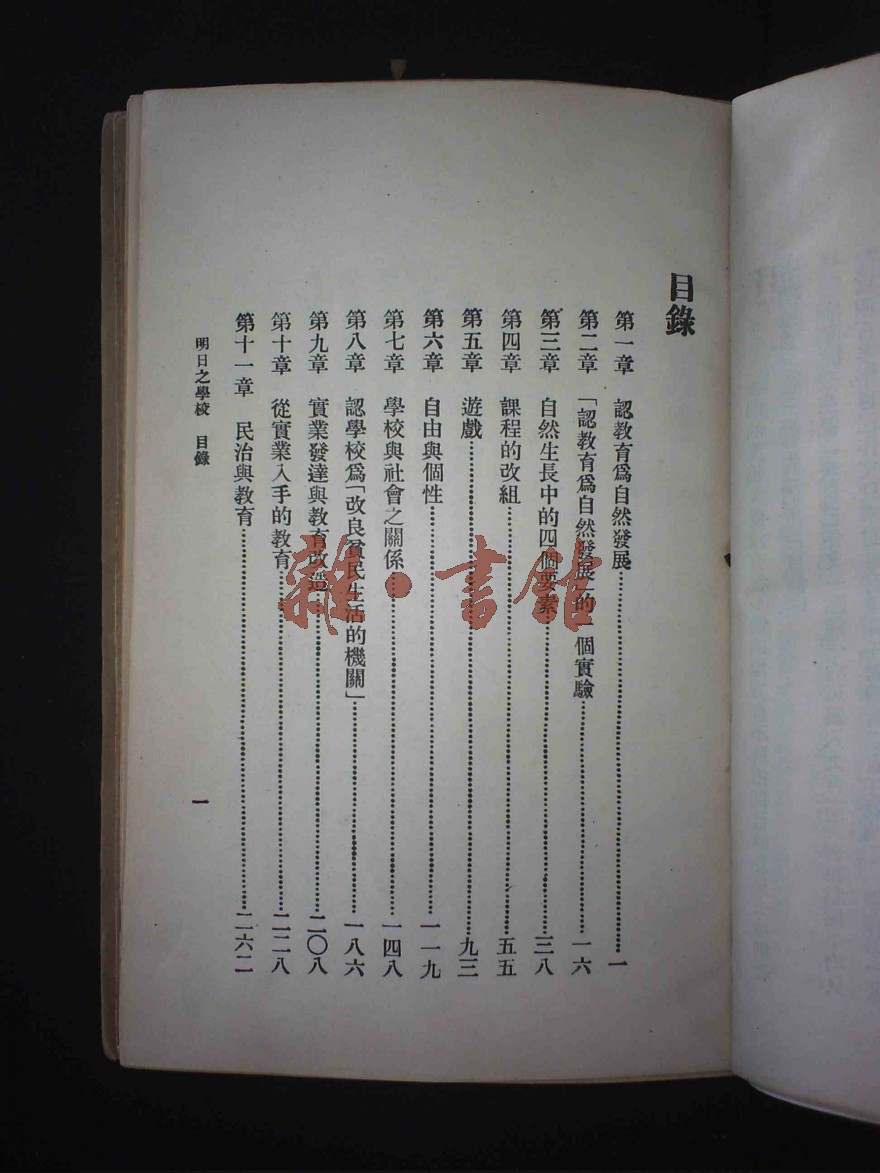 目錄
第一章　認教育爲自然發展……一
第二章　「認教育爲自然發展」的一個實驗……一六
第三章　自然生長中的四個要素……三八
第四章　課程的改組……五五
第五章　遊戲……九三
第六章　自由與個性……一一九
第七章　學校與社會之關係……一四八
第八章　認學校爲「改良貧民生活的機關」……一八六
第九章　實業發達與教育改造……二〇八
第十章　從實業入手的教育……二二八
第十一章　民治與教育……二六二
明日之學校　目錄
一
雜·書館